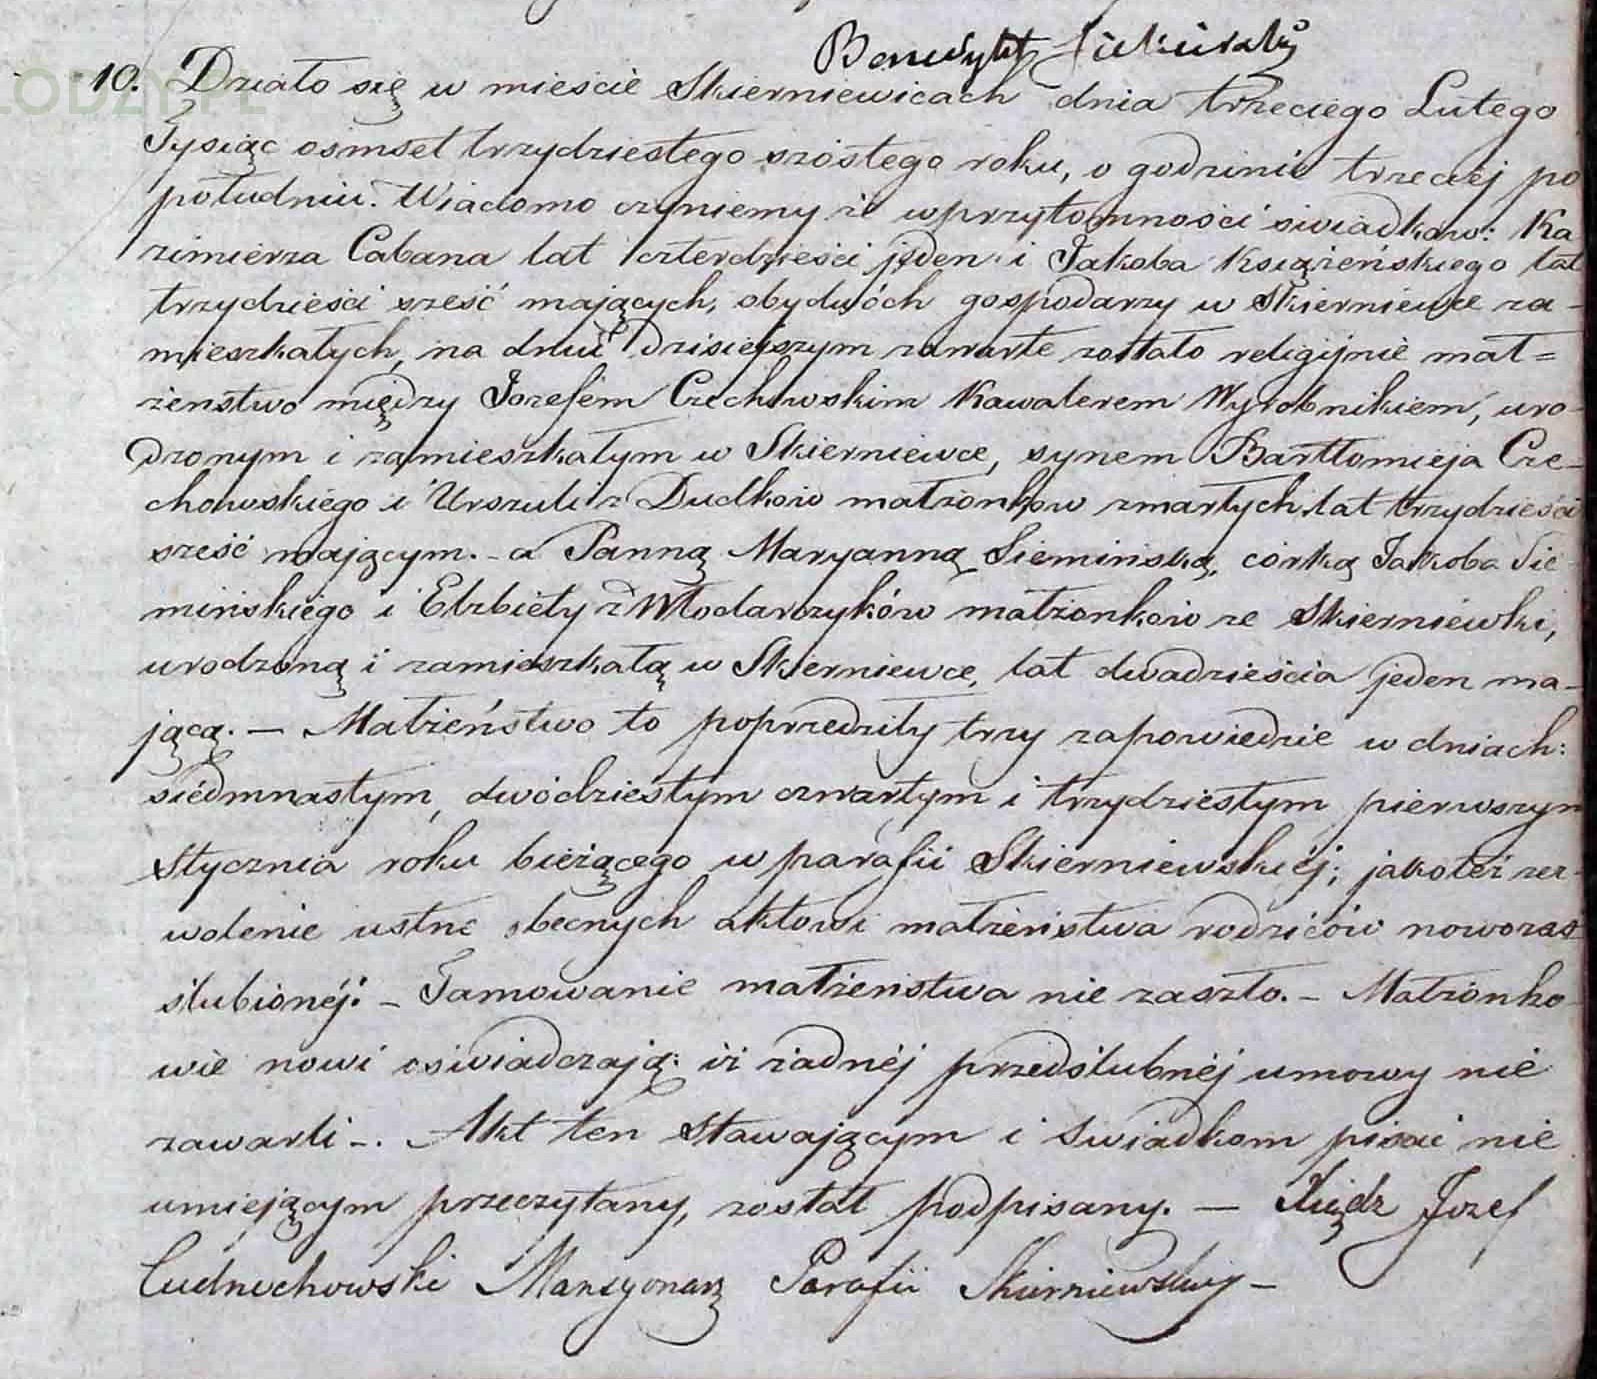 Benedykt
10. Działo się w mieście Skierniewicach dnia trzeciego Lutego
Tysiąc osmset trzydziestego szóstego roku, o godzinie trzeciej po
południu. Wiadomo czyniemy iż w przytomności świadków: Ka
zimierza Cabana lat czterdzieści jeden i Jakoba Księżeńskiego lat
trzydzieści sześć mających, obydwóch gospodarzy w Skierniewce za-
mieszkałych, na dniu dzisiejszym zawarte zostało religijnie mał=
żeństwo między Jozefem Czechowskim Kawalerem Wyrobnikiem, uro-
dzonym i zamieszkałym w Skierniewce, synem Bartłomieja Cze-
chowskiego i Urszuli z Dudków małżonków zmarłych, lat trzydzieści
sześć mającym. - a Panną Maryanną Siemińską, córką Jakoba Sie
mińskiego i Elżbiety z Włodarczyków małżonków ze Skierniewki,
urodzoną i zamieszkałą w Skierniewce, lat dwadzieścia jeden ma-
jącą. — Małżeństwo to poprzedziły trzy zapowiedzie w dniach:
siedmnastym, dwódziestym czwartym i trzydziestym pierwszym
Stycznia roku bieżącego w parafii Skierniewskiéj; jakoteż zez-
wolenie ustne obecnych aktowi małżeństwa rodziców nowozaś
ślubionéj. - Tamowanie małżeństwa nie zaszło. - Małżonko
wie nowi oświadczają: iż żadnéj przedślubnéj umowy nie
zawarli -. Akt ten stawającym i świadkom pisać nie
umiejącym przeczytany, został podpisany. — Xiądz Jozef
Cudnochowski Mansyonarz Parafii Skierniewskiej -